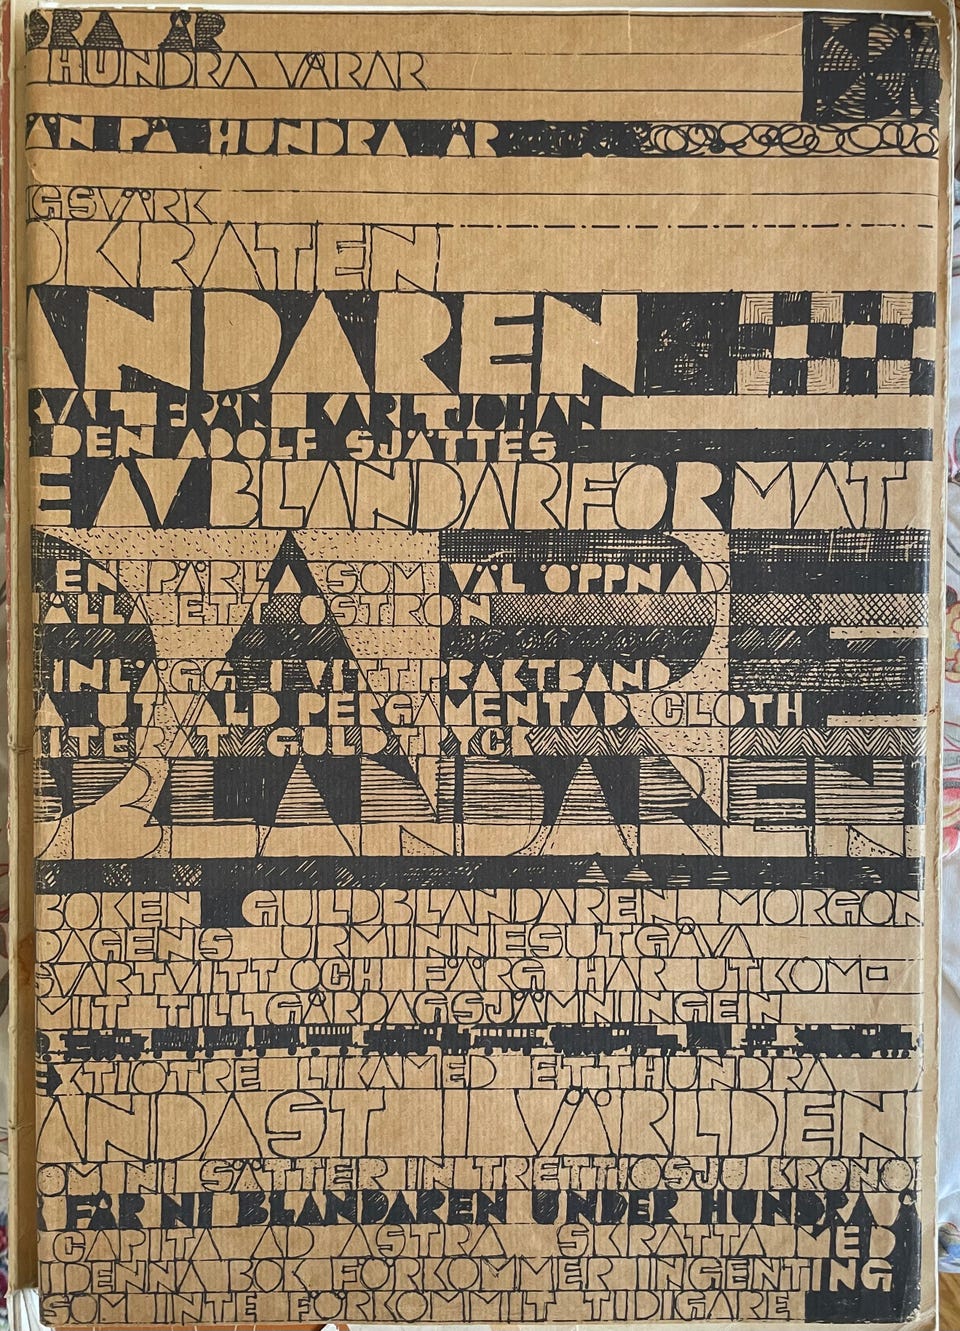 DRA ÅR
HUNDRA VÅRAR
ÄN PÅ HUNDRA ÅR
GSVÄRK
OKRATEN
ANDAREN
RVALT FRÅN KARLTJOHAN
DEN ADOLF SJÄTTES
E AV BLANDARFORMAT
EN PÄRLA SOM VÄL ÖPPNAD
ÄLLA ETT OSTRON
INLÄGG I VITT PRAKTBAND
A UTVALD PERGAMENTAD CLOTH
ITERÄT GULDTRYCK
BLANDAREN
BOKEN GULDBLANDAREN, MORGON
DAGENS URMINNESUTGÅVA
SVARTVITT OCH FÄRG HAR UTKOM
MIT TILL GÅRDAGSJÄMNINGEN
EXTIOTRE LIKAMED ETTHUNDRA
ANDAST I VÄRLDEN
OM NI SÄTTER IN TRETTIOSJU KRONO
FÅR NI BLANDAREN UNDER HUNDRA Å
CAPITA AD ASTRA SKRATTA MED
DENNA BOK FÖRKOMMER INGENTING
SOM INTE FÖRKOMMIT TIDIGARE